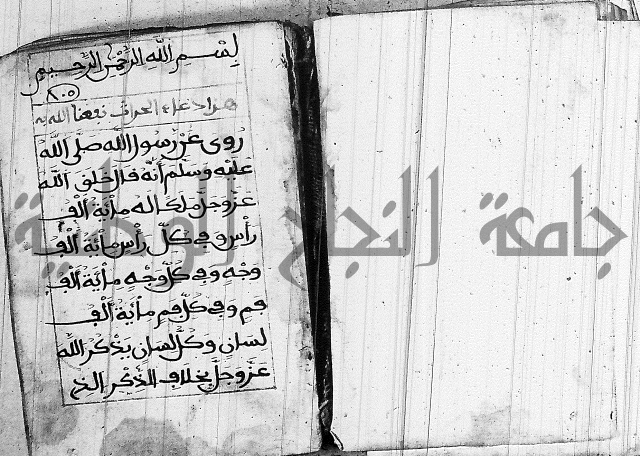 بِسْمِ اللهِ الرَّحْمٰنِ الرَّحِيمِ
٨٠٥
هذا دعاء نفعنا الله به
رُوِىَ عَنْ رَسُولِ اللَّهِ صَلَّى اللَّهُ
عَلَيْهِ وَسَلَّمَ أَنَّهُ قَالَ خَلَقَ اللَّهُ
عَزَّ وَجَلَّ مَلَكًا لَهُ مِائَةُ أَلْفِ
رَأْسٍ وَفِي كُلِّ رَأْسٍ مِائَةُ أَلْفِ
وَجْهٍ وَفِي كُلِّ وَجْهٍ مِائَةُ أَلْفِ
فَمٍ وَفِي كُلِّ فَمٍ مِائَةُ أَلْفِ
لِسَانٍ وَكُلُّ لِسَانٍ يَذْكُرُ اللَّهَ
عَزَّ وَجَلَّ بِخِلَافِ الذِّكْرِ الذي
جامعة النجاح الوطنية